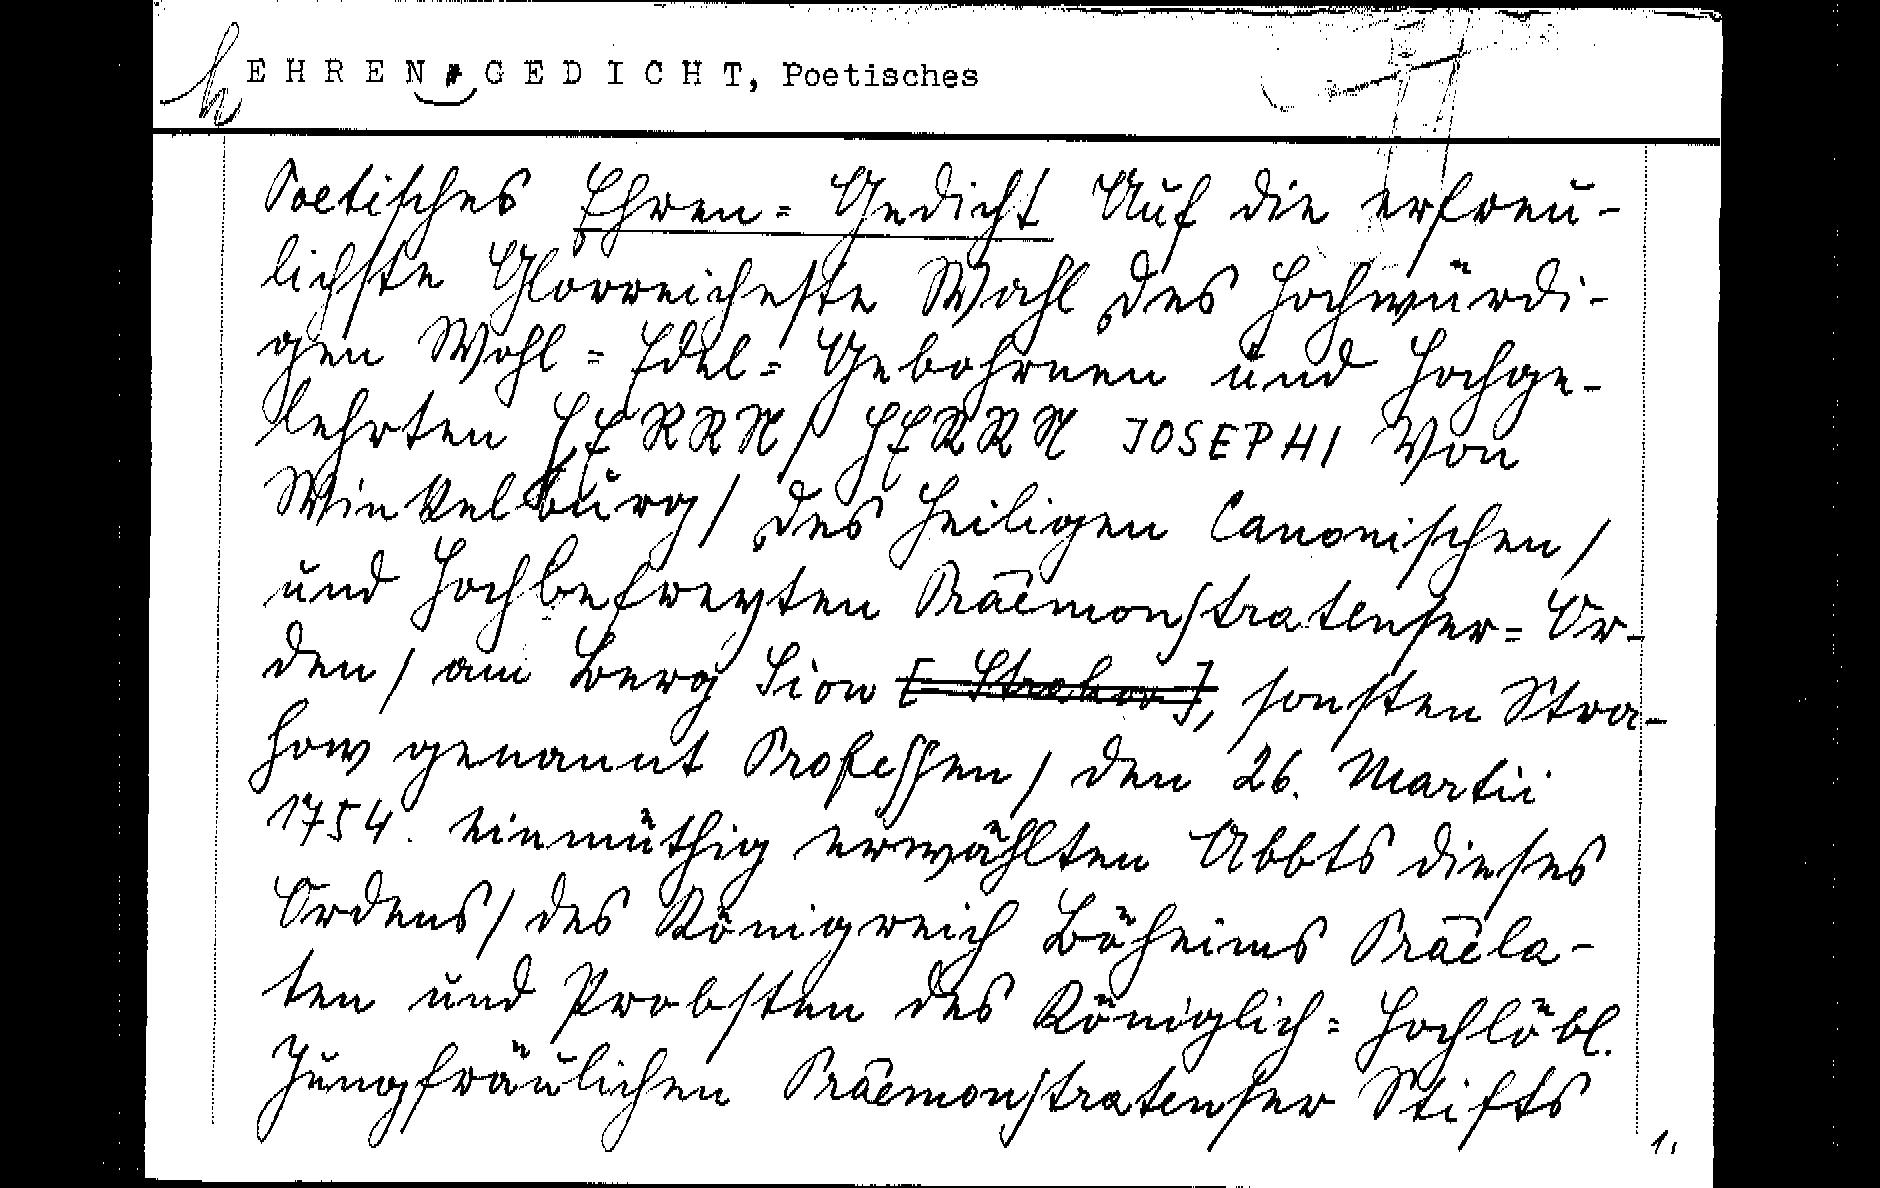 EHREN-GEDICHT, Poetisches
Poetisches Ehren= Gedicht Auf die erfreu-
lichste Glorreicheste Wahl des Hochwürdi-
gen Wohl= Edel= Gebohrnen und Hochge-
lehrten HERRN/ HERRN JOSEPHI Von
Winkelburg/ des Heiligen Canonischen/
und Hochbefreyten Praëmonstratenser= Or-
den/ am Berg Sion [Strahov], sonsten Stra-
how genannt Professen/ den 26. Martii
1754. einmüthig erwählten Abbts dieses
Ordens/ des Königreich Böheims Praëla-
ten und Probsten des Königlich= Hochlöbl.
Jungfräulichen Praëmonstratenser Stifts
1,